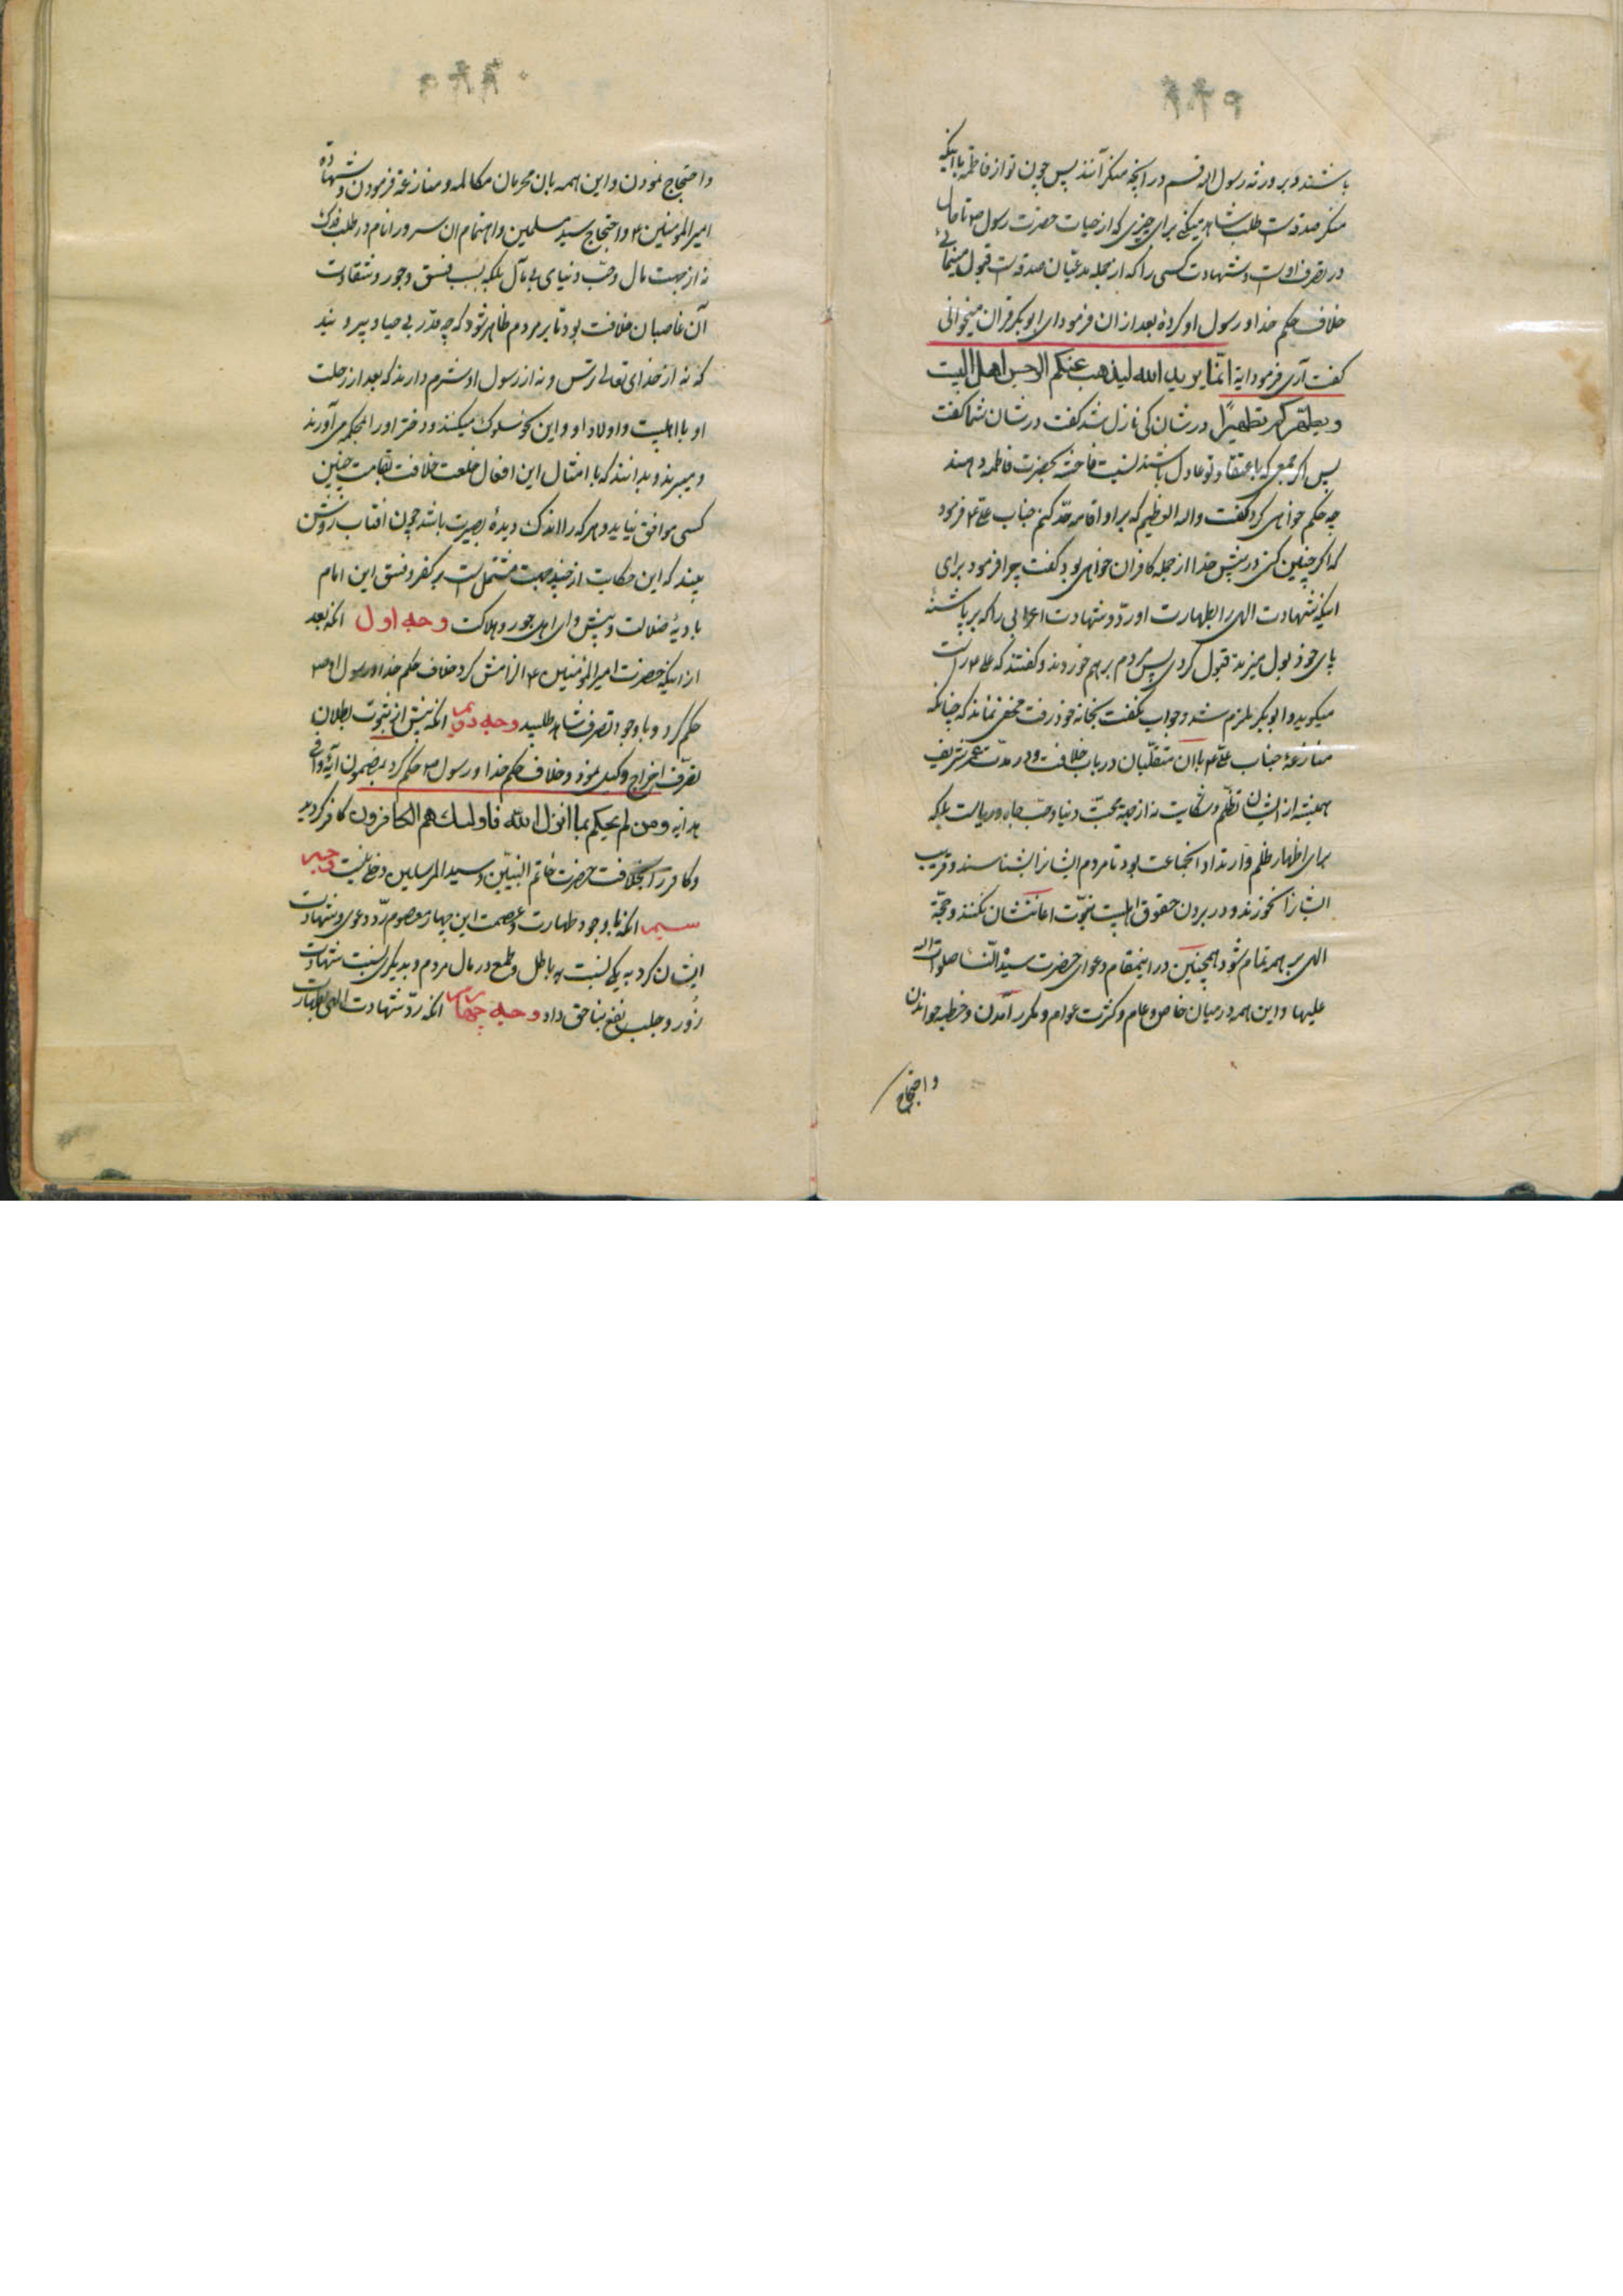 باشند و بر ورثه رسول الله قسم در آنچه منکر آنند پس چون تو از فاطمه با اینکه
منکر صدقه است طلب شاهد میکنی برای چیزی که از حیات حضرت رسول ص تا حال
در تصرف اوست و شهادت کسی را که از جمله مدعیان صدقه است قبول مینمائی
خلاف حکم خدا و رسول او کردهٔ بعد از ان فرمود ای ابوبکر قران میخوانی
گفت آری فرمود ایة انّما یرید الله لیذهب عنکم الرجس اهل البیت
و یطهّرکم تطهیرًا در شان کی نازل شد گفت در شان شما گفت
پس اگر جمعی که باعتقاد تو عادل باشند نسبت فاحشه بحضرت فاطمه دهند
چه حکم خواهی کرد گفت والله العظیم که بر او اقامه حد کنم جناب علی ع فرمود
که اگر چنین کنی در پیش خدا از جمله کافران خواهی بود گفت چرا فرمود برای
اینکه شهادت الهی را بطهارت او ردّ و شهادت اعرابی را که بر پاشنهٔ
پای خود بول میزند قبول کردی پس مردم برهم خوردند و گفتند که علی ع راست
میگوید و ابوبکر ملزم شد و جواب نگفت بخانه خود رفت مخفی نماند که چنانکه
منازعهٔ جناب علی ع باان متقلّبان در باب خلافت و در مدّت عمر شریف
همیشه از ایشان تظلّم و شکایت نه از جهة محبّت دنیا و حبّ جاه و ریاست بلکه
برای اظهار ظلم و ارتداد انجماعت بود تا مردم ایشانرا بشناسند و فریب
ایشانرا نخورند و در بردن حقوق اهلبیت نبوّت اعانتشان نکنند و حجّة
الهی بر همه تمام شود همچنین در اینمقام دعوای حضرت سیّدة النّسا صلوات الله
علیها و این همه در میان خاص و عام و کثرت عوام و مکرر آمدن و خطبه خواندن
و احتجاج
و احتجاج نمودن و این همه بان محربان مکالمه و منازعة فرمودن و شهادة
امیر المؤمنین ع و احتجاج سید مسلمین و اهتمام ان سرور انام در طلب فدک
نه از جهت مال و حبّ دنیای بی مآل بلکه بسبب فسق و جور و شقاوت
آن غاصبان خلافت بود تا بر مردم ظاهر شود که چه قدر بی حیا و بیر
که نه از خدای تعالی ترس و نه از رسول او شرم دارند که بعد از رحلت
او با اهلبیت و اولاد او و این نحو سلوک میکنند و دختر او را بمحکمه می آورند
و میبرند و بدانند که با امثال این افعال خلعت خلافت بقامت چنین
کسی موافق نیاید و هر که را اندک دیدهٔ بصیرت باشد چون افتاب روشن
بیند که این حکایت از چند جهت مشتملست بر کفر و فسق این امام
بادیهٔ ضلالت و پیشوای اهل جور و هلاکت وجه اول انکه بعد
از اینکه حضرت امیر المؤمنین ع الزامش کرد خلاف حکم خدا و رسول او ص
حکم کرد و با وجود تصرف شاهد طلبید وجه دویم انکه پیش از ثبوت بطلان
تصرّف اخراج وکیل نمود و خلاف حکم خدا و رسول ص حکم کرد بمضمون آیهٔ وافی
هدایه و من لم یحکم بما انزل الله فاولئک هم الکافرون کافر گردید
و کافر را بخلافت حضرت خاتم النبیّین و سید المرسلین دخلی نیست وجه
سیم انکه با وجود طهارت و عصمت این چهار معصوم ردّ دعوی و شهادت
ایشان کرد به یکی نسبت به باطل و طمع در مال مردم و بدیگری نسبت شهادت
زُور و جلب نفع بناحق داد وجه چهارم انکه ردّ شهادت الهی بطهارت